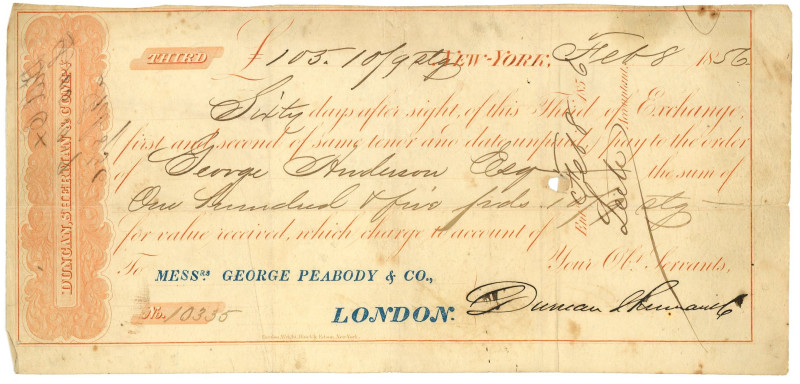 DUNCAN, SHERMAN & COMP'Y
THIRD £ 105. 10/9 stg NEW-YORK, Feb 8 1856
Sixty days after sight, of this Third of Exchange,
first and second of same tenor and date unpaid, pay to the order
of George Anderson Esq the sum of
One hundred & five pds 10/9 stg
for value received, which charge to account of
To Your Obt. Servants,
MESSRS GEORGE PEABODY & CO.,
No. 10335 LONDON. Duncan Sherman & Co
Feb 8 1856
Accountant